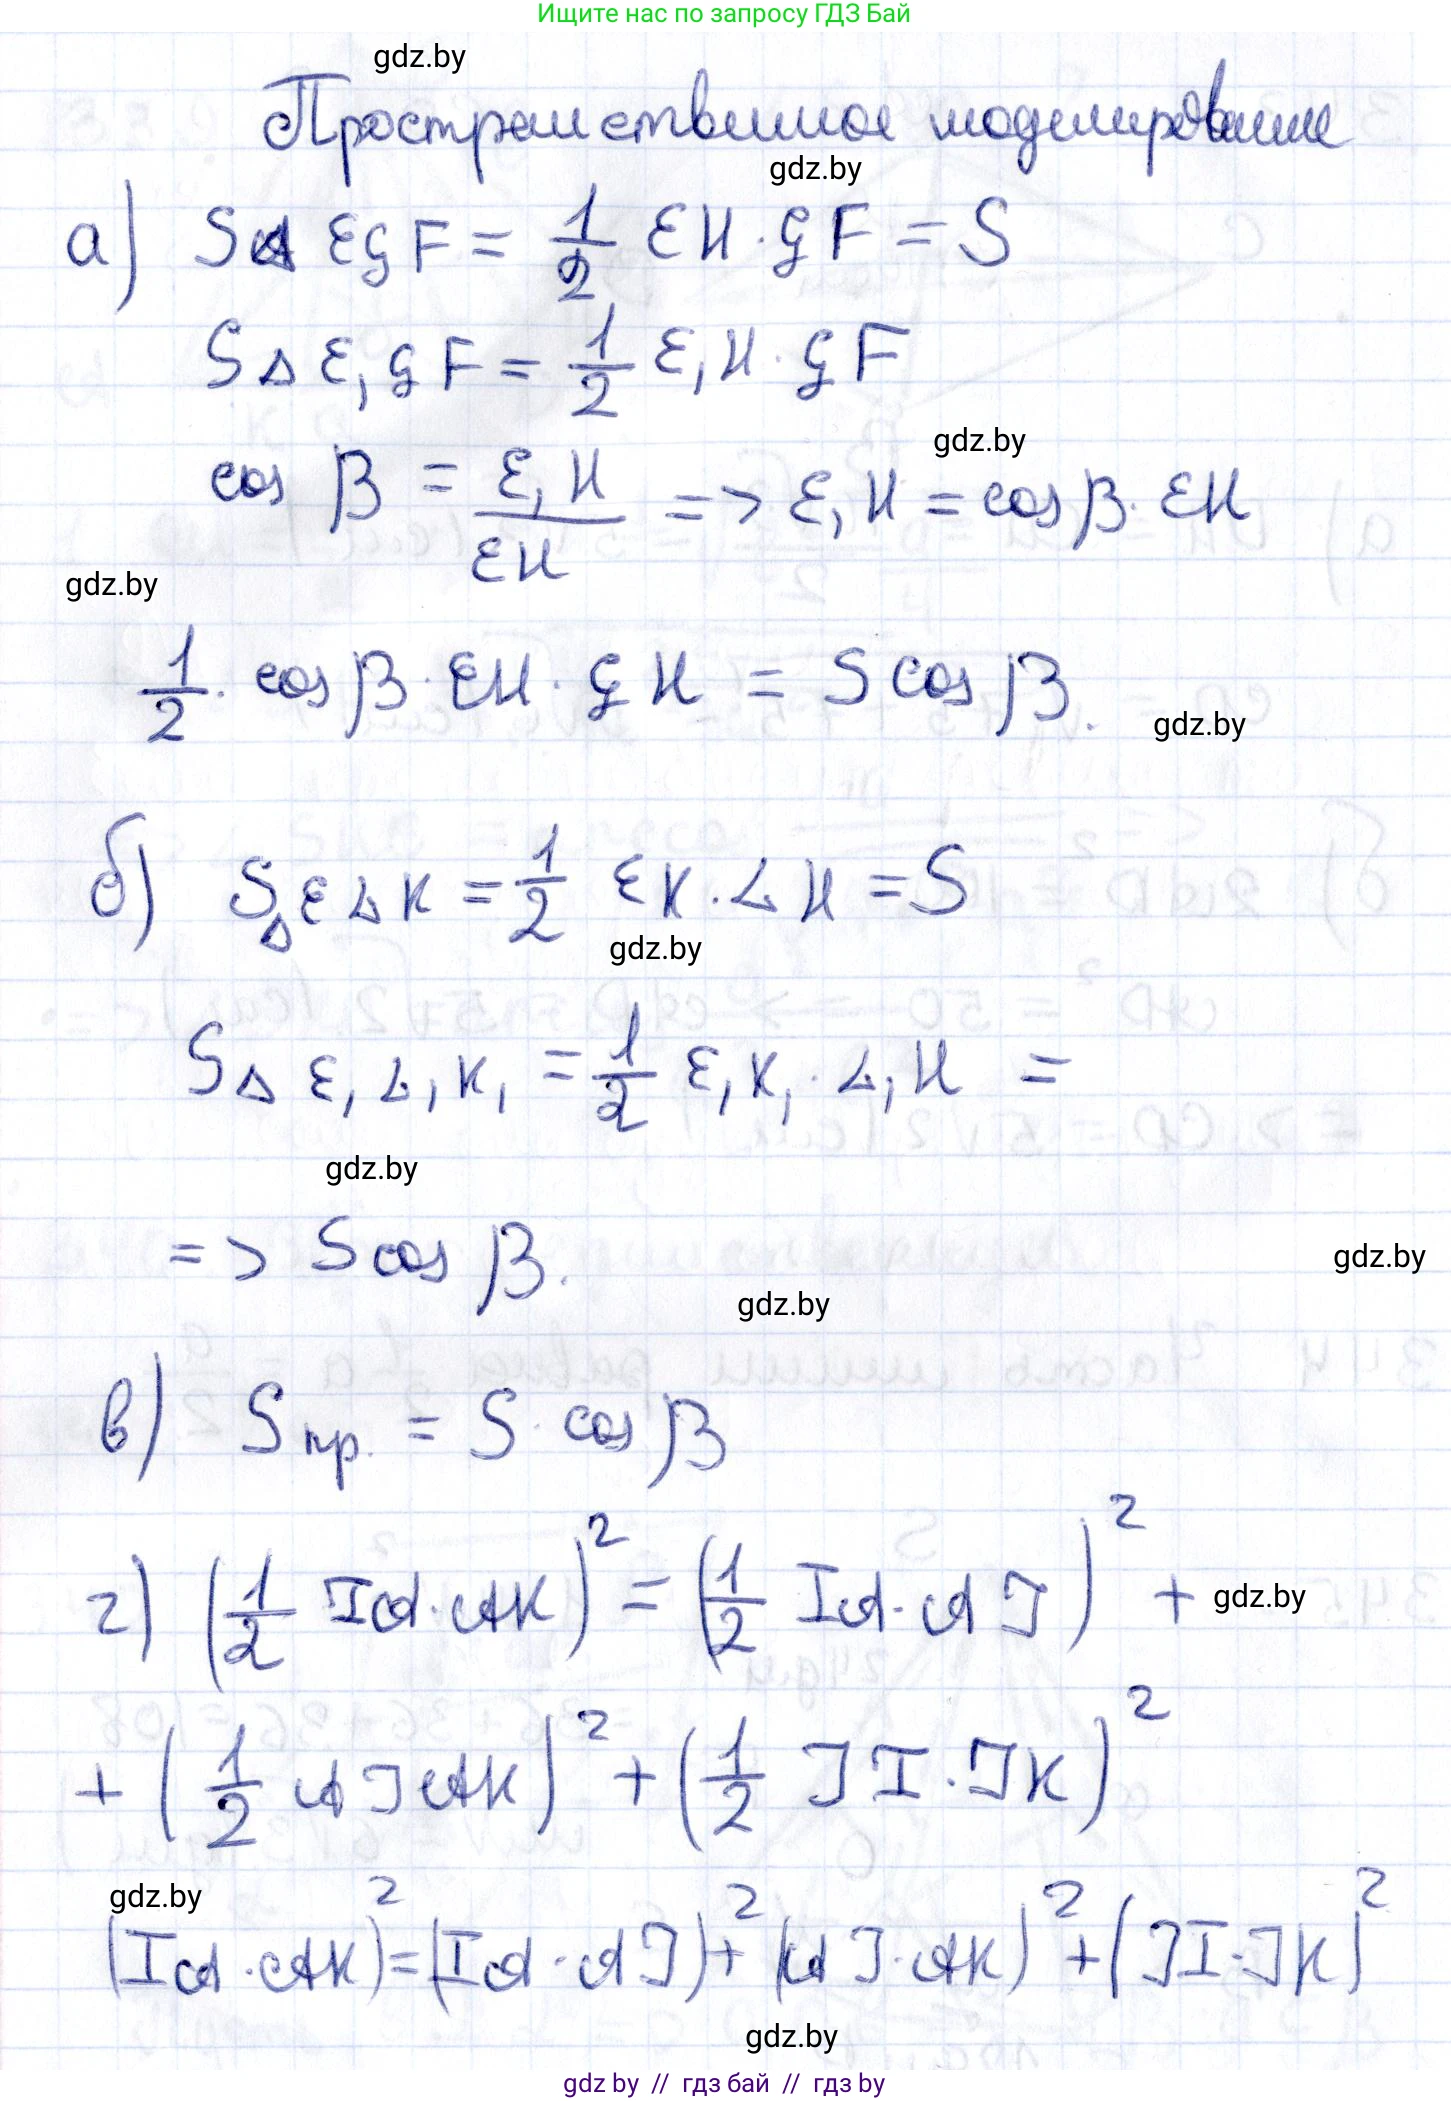 Ищите нас по запросу ГДЗ Бай
gdz.by
Пространственное моделирование
gdz.by
а) S△ EGF = 1/2 EH · GF = S
S△ E₁GF = 1/2 E₁H · GF
gdz.by
cos β = E₁H/EH => E₁H = cos β · EH
gdz.by
1/2 · cos β · EH · GH = S cos β.
gdz.by
б) S△ELK = 1/2 EK · LH = S
gdz.by
S△ E₁L₁K₁ = 1/2 E₁K₁ · L₁H =
gdz.by
=> S cos β.
gdz.by
gdz.by
в) Sпр. = S · cos β
г) (1/2 IA · AK)² = (1/2 IA · AJ)² +
gdz.by
+ (1/2 AJ AK)² + (1/2 JI · JK)²
gdz.by
(IA · AK)² = (IA · AJ)² + (AJ · AK)² + (JI · JK)²
gdz.by
gdz by // гдз бай // гдз by